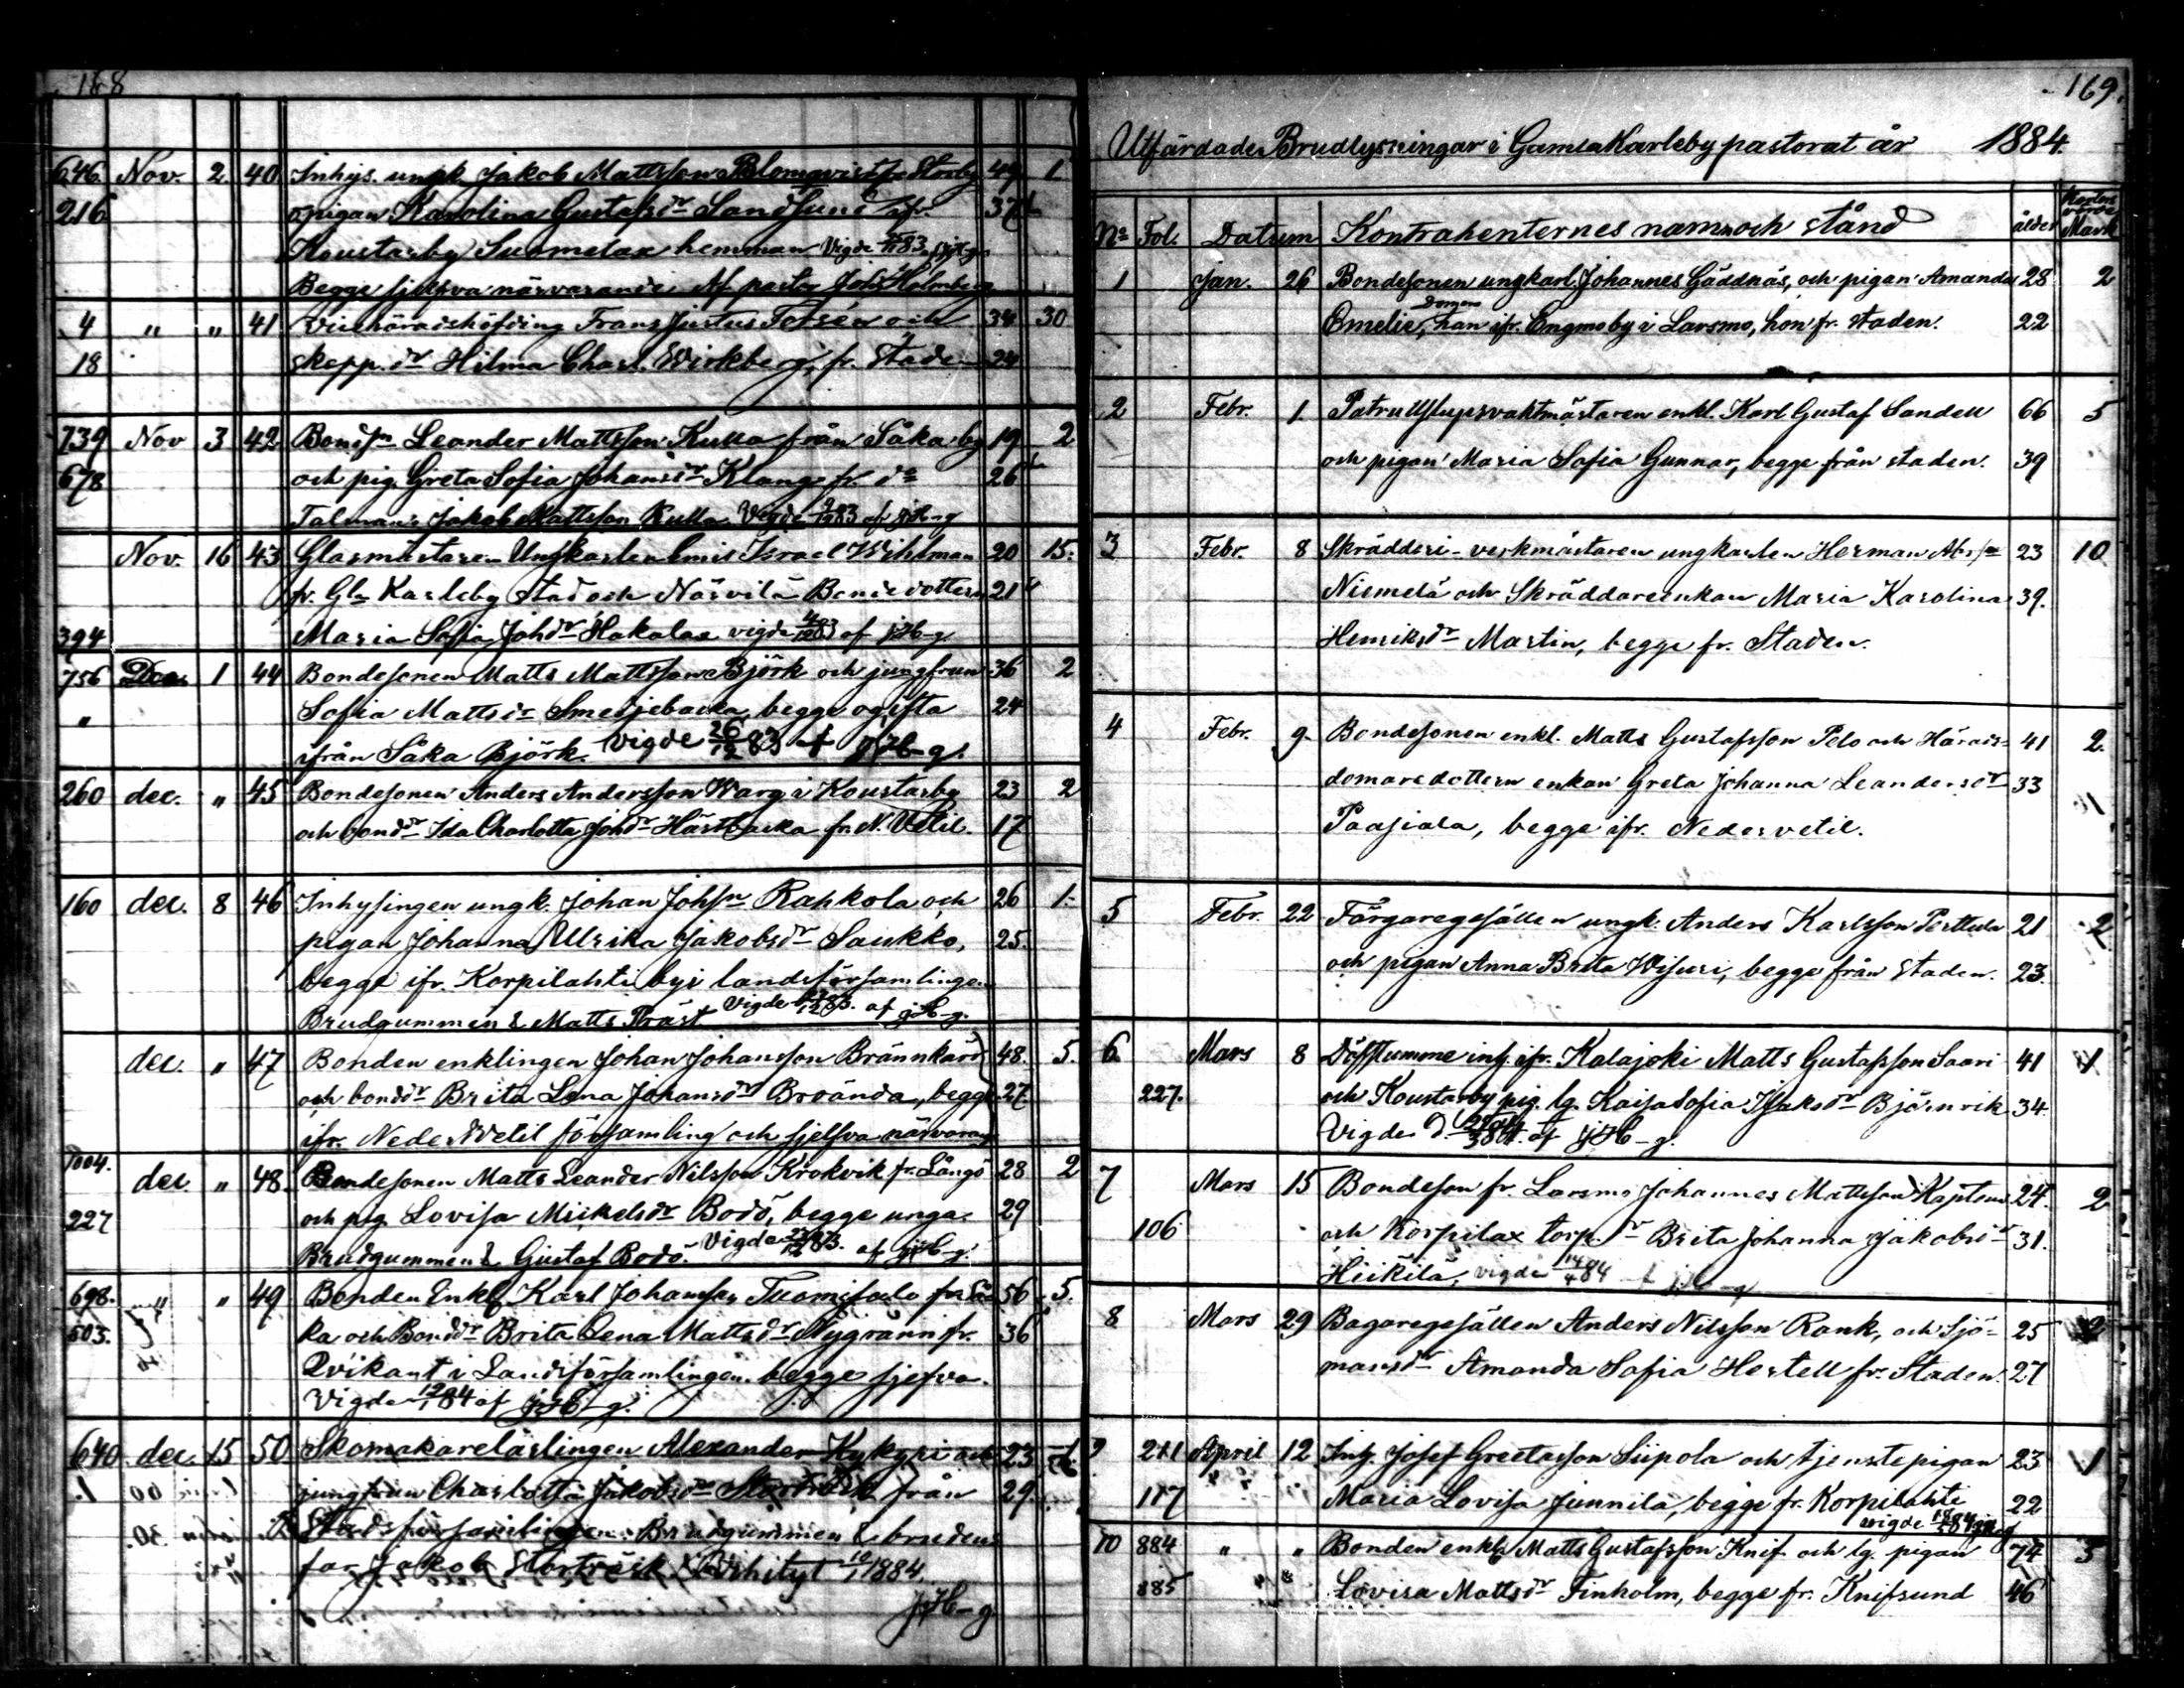 168
646. Nov. 2. 40 Inhys. ungk. Jakob Mattsson Blomqvist fr Storby 49 1.
216 o pigan Karolina Gustafsdr Sandsund ifr. 37
Koustarby Suomelax hemman Vigde 83
Begge sjelfva närvarande. Af pastor Joh Holmberg
4 " " 41 Vicehäradshöfding Frans Justus Forsén och 34 30
18 skepp. dr Hilma Charl. Wirkberg, fr. Staden 24
739 Nov 3 42 Bondsn Leander Mattsson Kulla från Såka by 19 2
678 och pig. Greta Sofia Johansdr Klang fr. do 26
Talman: Jakob Mattsson Kulla Vigde 83 af JHb-g
Nov. 16 43 Glasmästaren Ungkarlen Emil Israel Wihlman 20 15.
fr. Gla Karleby stad och Närvilä Bondedottern 21
394 Maria Sofia Johdr Hakalax vigde af JHb-g
756 Dec. 1 44 Bondesonen Matts Mattsson Björk och jungfrun 36 2
" Sofia Mattsdr Smedjebacka, begge ogifta 24
ifrån Såka Björk. Vigde 26/12 83 af JHb-g.
260 dec. " 45 Bondesonen Anders Andersson Warg i Koustarby 23 2
och bonddr Ida Charlotta Johdr Härtbacka fr. N. Vetil. 17
160 dec. 8 46 Inhysingen ungk. Johan Johsn Rahkola och 26 1.
pigan Johanna Ulrika Jakobsdr Saukko, 25.
begge ifr. Korpilahti by i landsförsamlingen
Brudgummen & Matts Präst Vigde 83. af JHb-g.
dec. " 47 Bonden enklingen Johan Johansson Brännkärr 48. 5.
och bonddr Brita Lena Johansdr Broända, begge 27
ifr. Neder Vetil församling och sjelfva närvaran
1004. dec. " 48. Bondesonen Matts Leander Nilsson Krokvik fr. Långö 28 2
227 och pig. Lovisa Mickelsdr Bodö, begge unga. 29
Brudgummen & Gustaf Bodö. Vigde 83. af JHb-g.
698. " " 49 Bonden Enkl. Karl Johansson Tuomisalo fr. Så 56 5.
503. ka och Bonddr Brita Lena Mattsdr Nygrann fr. 36
Qvikant i Landsförsamlingen. begge sjelfva.
Vigde 84 af JHb-g.
640 dec. 15 50 Skomakarelärlingen Alexander Kykyri och 23 1
jungfrun Charlotta Jakobsdr Storträsk från 29.
Stadsförsamlingen. Brudgummen & brudens
far Jakob Storträsk 1884.
JHb-g
169.
Utfärdade Brudlysningar i Gamla Karleby pastorat år 1884.
No Fol. Datum Kontrahenternes namn och stånd ålder Mark
1 Jan. 26 Bondesonen ungkarl. Johannes Gäddnäs, och pigan Amanda 28 2
Emelie, han ifr. Engmo by i Larsmo, hon fr. staden. 22
2 Febr. 1. Patrullslupsvaktmästaren enkl. Karl Gustaf Sandell 66 5
och pigan Maria Sofia Gunnar, begge från staden. 39
3 Febr. 8 Skrädderi-verkmästaren ungkarlen Herman Abrsn 23 10
Niemelä och Skräddareenkan Maria Karolina 39.
Henriksdr Martin, begge fr. Staden.
4 Febr. 9. Bondesonen enkl. Matts Gustafsson Pelo och Härads- 41 2.
domaredottern enkan Greta Johanna Leandersdr 33
Paasiala, begge ifr. Nedervetil.
5 Febr. 22 Färgaregesällen ungk. Anders Karlsson Perttula 21 2
och pigan Anna Brita Wisuri, begge från staden. 23.
6. Mars 8 Döfstumme inh. ifr. Kalajoki Matts Gustafsson Saari 41 1
227. och Koustarby pig. lg. Kaisa Sofia Isaksdr Björnvik 34.
Vigde d. af JHb-g.
7 Mars 15 Bondeson fr. Larsmo Johannes Mattsson Kaptens 24. 2
106 och Korpilax torp. dr Brita Johanna Jakobsdr 31.
Hiikilä, vigde 14/4 84 af JHb-g
8 Mars 29 Bagaregesällen Anders Nilsson Rank, och Sjö- 25 2
mansdr Amanda Sofia Hertell fr. Staden. 27
9 211 April 12 Inh. Josef Greetasson Siipola och tjenstepigan 23 1
117 " " Maria Lovisa Junnila, begge fr. Korpilahti 22
vigde
10 884 " " Bonden enkl. Matts Gustafsson Knif och lg. pigan 74 3
885 " " Lovisa Mattsdr Finholm, begge fr. Knifsund 46